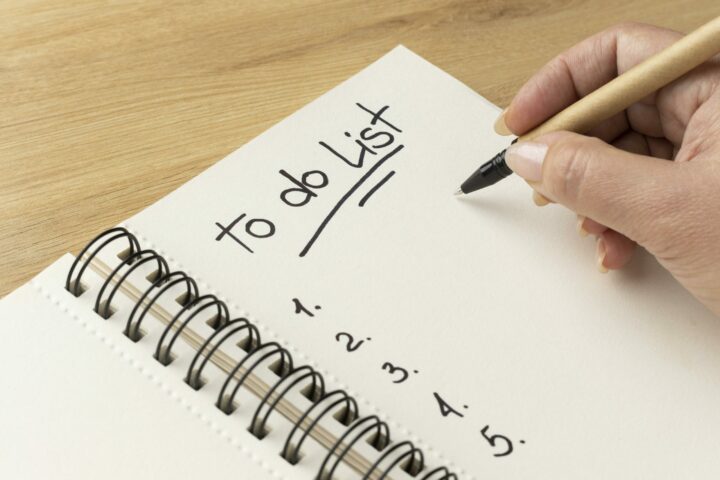 to do list
1.
2.
3.
4.
5.